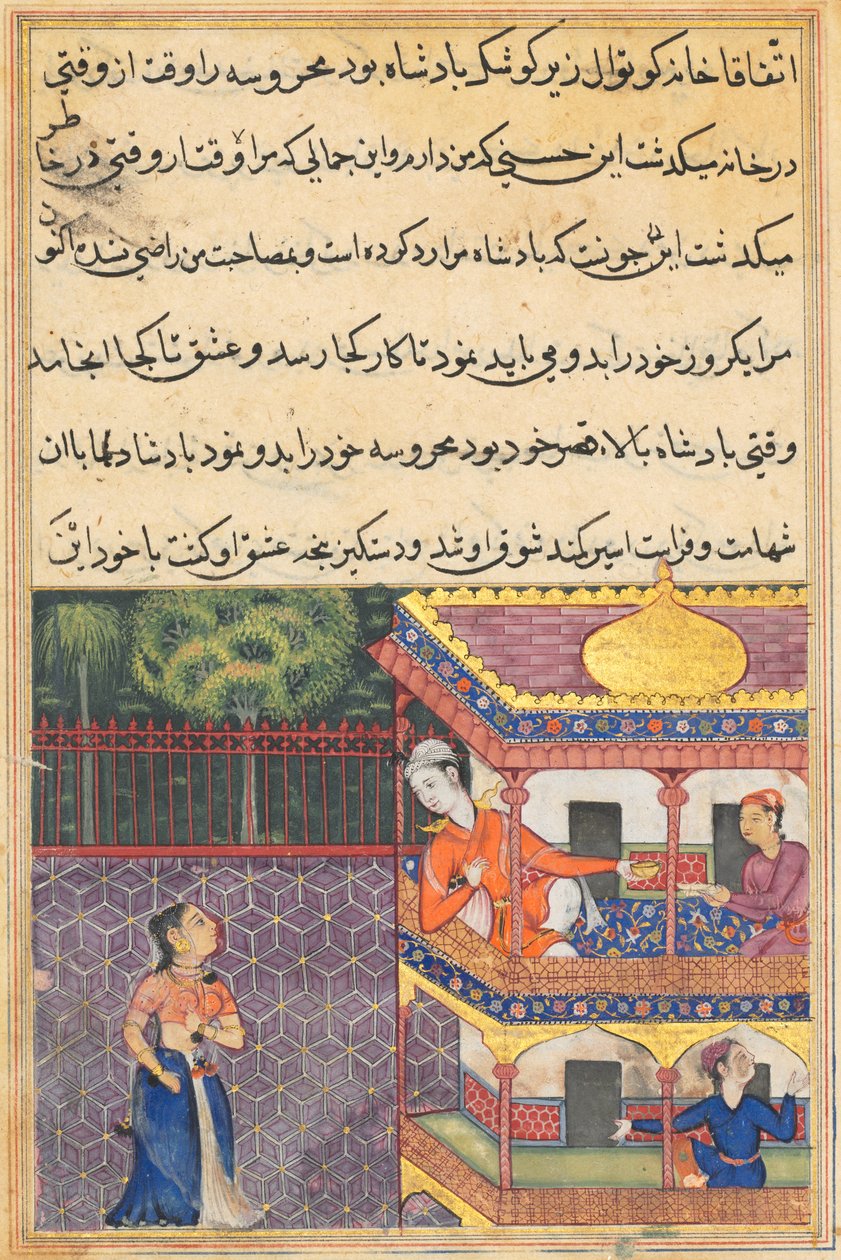 اتّفاقا خانه کوتوال زیر کوشک بادشاه بود محروسه را وقت از وقتی
در خانه میکدشت این حسنی که من دارم و این جمالی که مرا وقتا روقتی در خاطر
میکدشت این جونست که بادشاه مرا رد کرده است و بمصاحبت من راضی نشده اکنون
مرا یکروز خود را بدو می باید نمود تا کار کجا رسد و عشق تا کجا انجامد
وقتی بادشاه بالاء قصر خود بود محروسه خود را بدو نمود بادشاه باان
شهامت و فراست اسیر کمند شوق او شد و دستکیر عشق او کشت با خود این